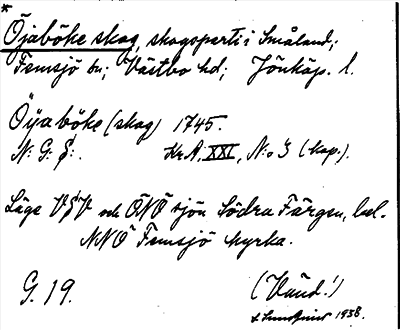 *
Öjaböke skog, skogsparti i Småland;
Femsjö sn; Västbo hd; Jönköp. l.
Öija böke (skog) 1745.
N: G: S:. Kr A, XXI, N:o 3 (kop.).
Läge VSV och ÖNÖ sjön Södra Färgen, bel.
NNÖ Femsjö kyrka.
G. 19. (Vänd!)
Lundquist 1938.